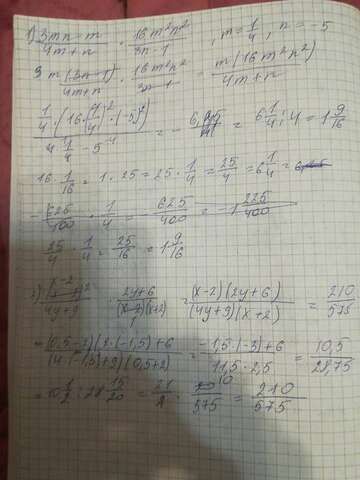 1) 3mn-m/4m+n · 16m²n²/3n-1 , m=1/4, n=-5
3 m(3n-1)/4m+n · 16m²n²/3n-1 = m(16m²n²)/4m+n
= 6 1/4 : 4 = 1 9/16
16 · 1/16 = 1 · 25 = 25 · 1/4 = 25/4 = 6 1/4
- 625/100 · 1/4 = - 625/400 = -1 225/400
25/4 · 1/4 = 25/16 = 1 9/16
2y+6/(x-2)(x+2) = (x-2)(2y+6)/(4y+9)(x+2) = 210/575
= (0,5-2)(2·(-1,5)+6/(4·(-1,5)+9)(0,5+2) = -1,5(-3)+6/11,5·2,5 = 10,5/28,75
= 10 1/2 : 28 15/20 = 21/2 · 10/575 = 210/575